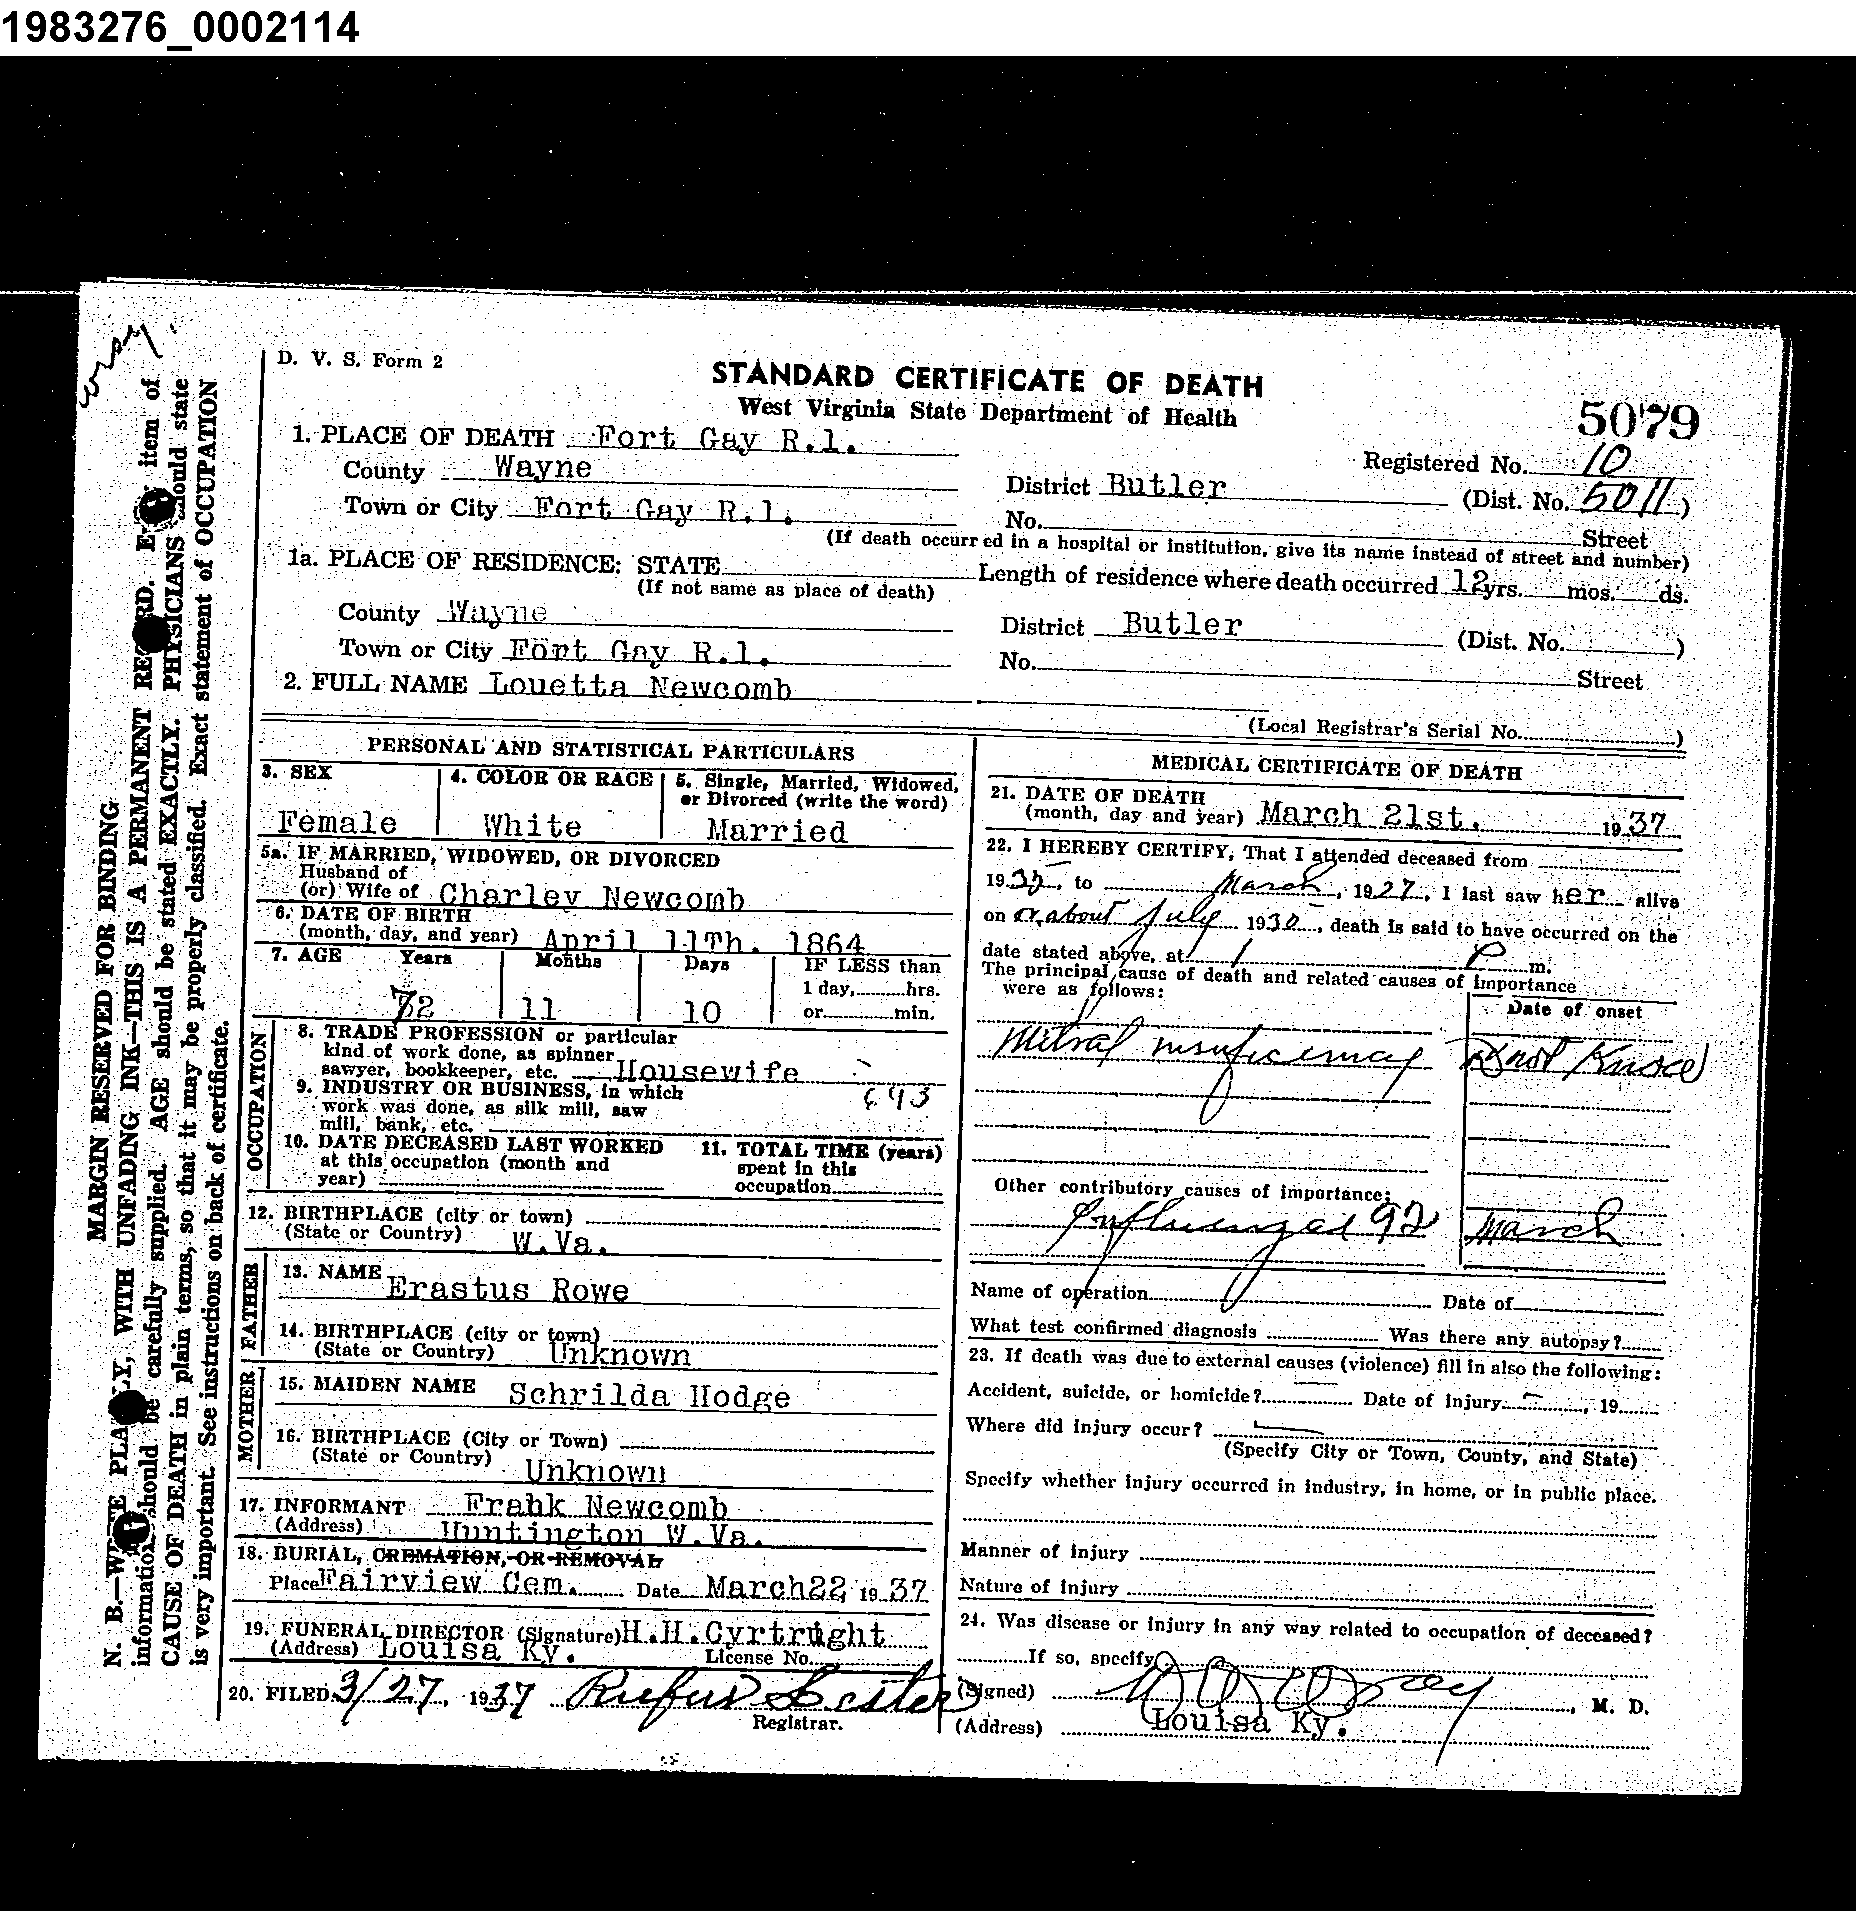 1983276_0002114
D. V. S. Form 2
STANDARD CERTIFICATE OF DEATH
West Virginia State Department of Health
5079
1. PLACE OF DEATH Fort Gay R.1.
Registered No. 10
County Wayne
District Butler (Dist. No. 5011)
Town or City Fort Gay R.1.
No. Street
(If death occurred in a hospital or institution, give its name instead of street and number)
1a. PLACE OF RESIDENCE: STATE
(If not same as place of death)
Length of residence where death occurred 12 yrs. mos. ds.
County Wayne
District Butler (Dist. No. )
Town or City Fort Gay R.1.
No. Street
2. FULL NAME Louetta Newcomb
(Local Registrar's Serial No. )
PERSONAL AND STATISTICAL PARTICULARS
3. SEX
Female
4. COLOR OR RACE
White
5. Single, Married, Widowed,
or Divorced (write the word)
Married
5a. IF MARRIED, WIDOWED, OR DIVORCED
Husband of
(or) Wife of Charley Newcomb
6. DATE OF BIRTH
(month, day, and year) April 11Th. 1864
7. AGE Years Months Days IF LESS than
1 day, hrs.
or min.
72 11 10
OCCUPATION
8. TRADE PROFESSION or particular
kind of work done, as spinner
sawyer, bookkeeper, etc. Housewife
9. INDUSTRY OR BUSINESS, in which
work was done, as silk mill, saw
mill, bank, etc.
10. DATE DECEASED LAST WORKED
at this occupation (month and
year)
11. TOTAL TIME (years)
spent in this
occupation
12. BIRTHPLACE (city or town)
(State or Country) W.Va.
FATHER
13. NAME Erastus Rowe
14. BIRTHPLACE (city or town)
(State or Country) Unknown
MOTHER
15. MAIDEN NAME Schrilda Hodge
16. BIRTHPLACE (City or Town)
(State or Country) Unknown
17. INFORMANT Frank Newcomb
(Address) Huntington W.Va.
18. BURIAL, CREMATION, OR REMOVAL
Place Fairview Cem. Date March22, 1937
19. FUNERAL DIRECTOR (Signature) H.H.Cyrtrught
(Address) Louisa Ky. License No.
20. FILED 3/27, 1937 Rufus Lester
Registrar.
MEDICAL CERTIFICATE OF DEATH
21. DATE OF DEATH
(month, day and year) March 21st. 1937
22. I HEREBY CERTIFY, That I attended deceased from
1935, to March, 1927, I last saw her alive
on or about July 1930, death is said to have occurred on the
date stated above, at 1 P m.
The principal cause of death and related causes of importance
were as follows:
Date of onset
Mitral insuficiency
Other contributory causes of importance:
92 March
Name of operation Date of
What test confirmed diagnosis Was there any autopsy?
23. If death was due to external causes (violence) fill in also the following:
Accident, suicide, or homicide? Date of injury , 19
Where did injury occur?
(Specify City or Town, County, and State)
Specify whether injury occurred in industry, in home, or in public place.
Manner of injury
Nature of injury
24. Was disease or injury in any way related to occupation of deceased?
If so, specify
(Signed) , M. D.
(Address) Louisa Ky.
MARGIN RESERVED FOR BINDING
N. B.—WRITE PLAINLY, WITH UNFADING INK—THIS IS A PERMANENT RECORD. Every item of
information should be carefully supplied. AGE should be stated EXACTLY. PHYSICIANS should state
CAUSE OF DEATH in plain terms, so that it may be properly classified. Exact statement of OCCUPATION
is very important. See instructions on back of certificate.